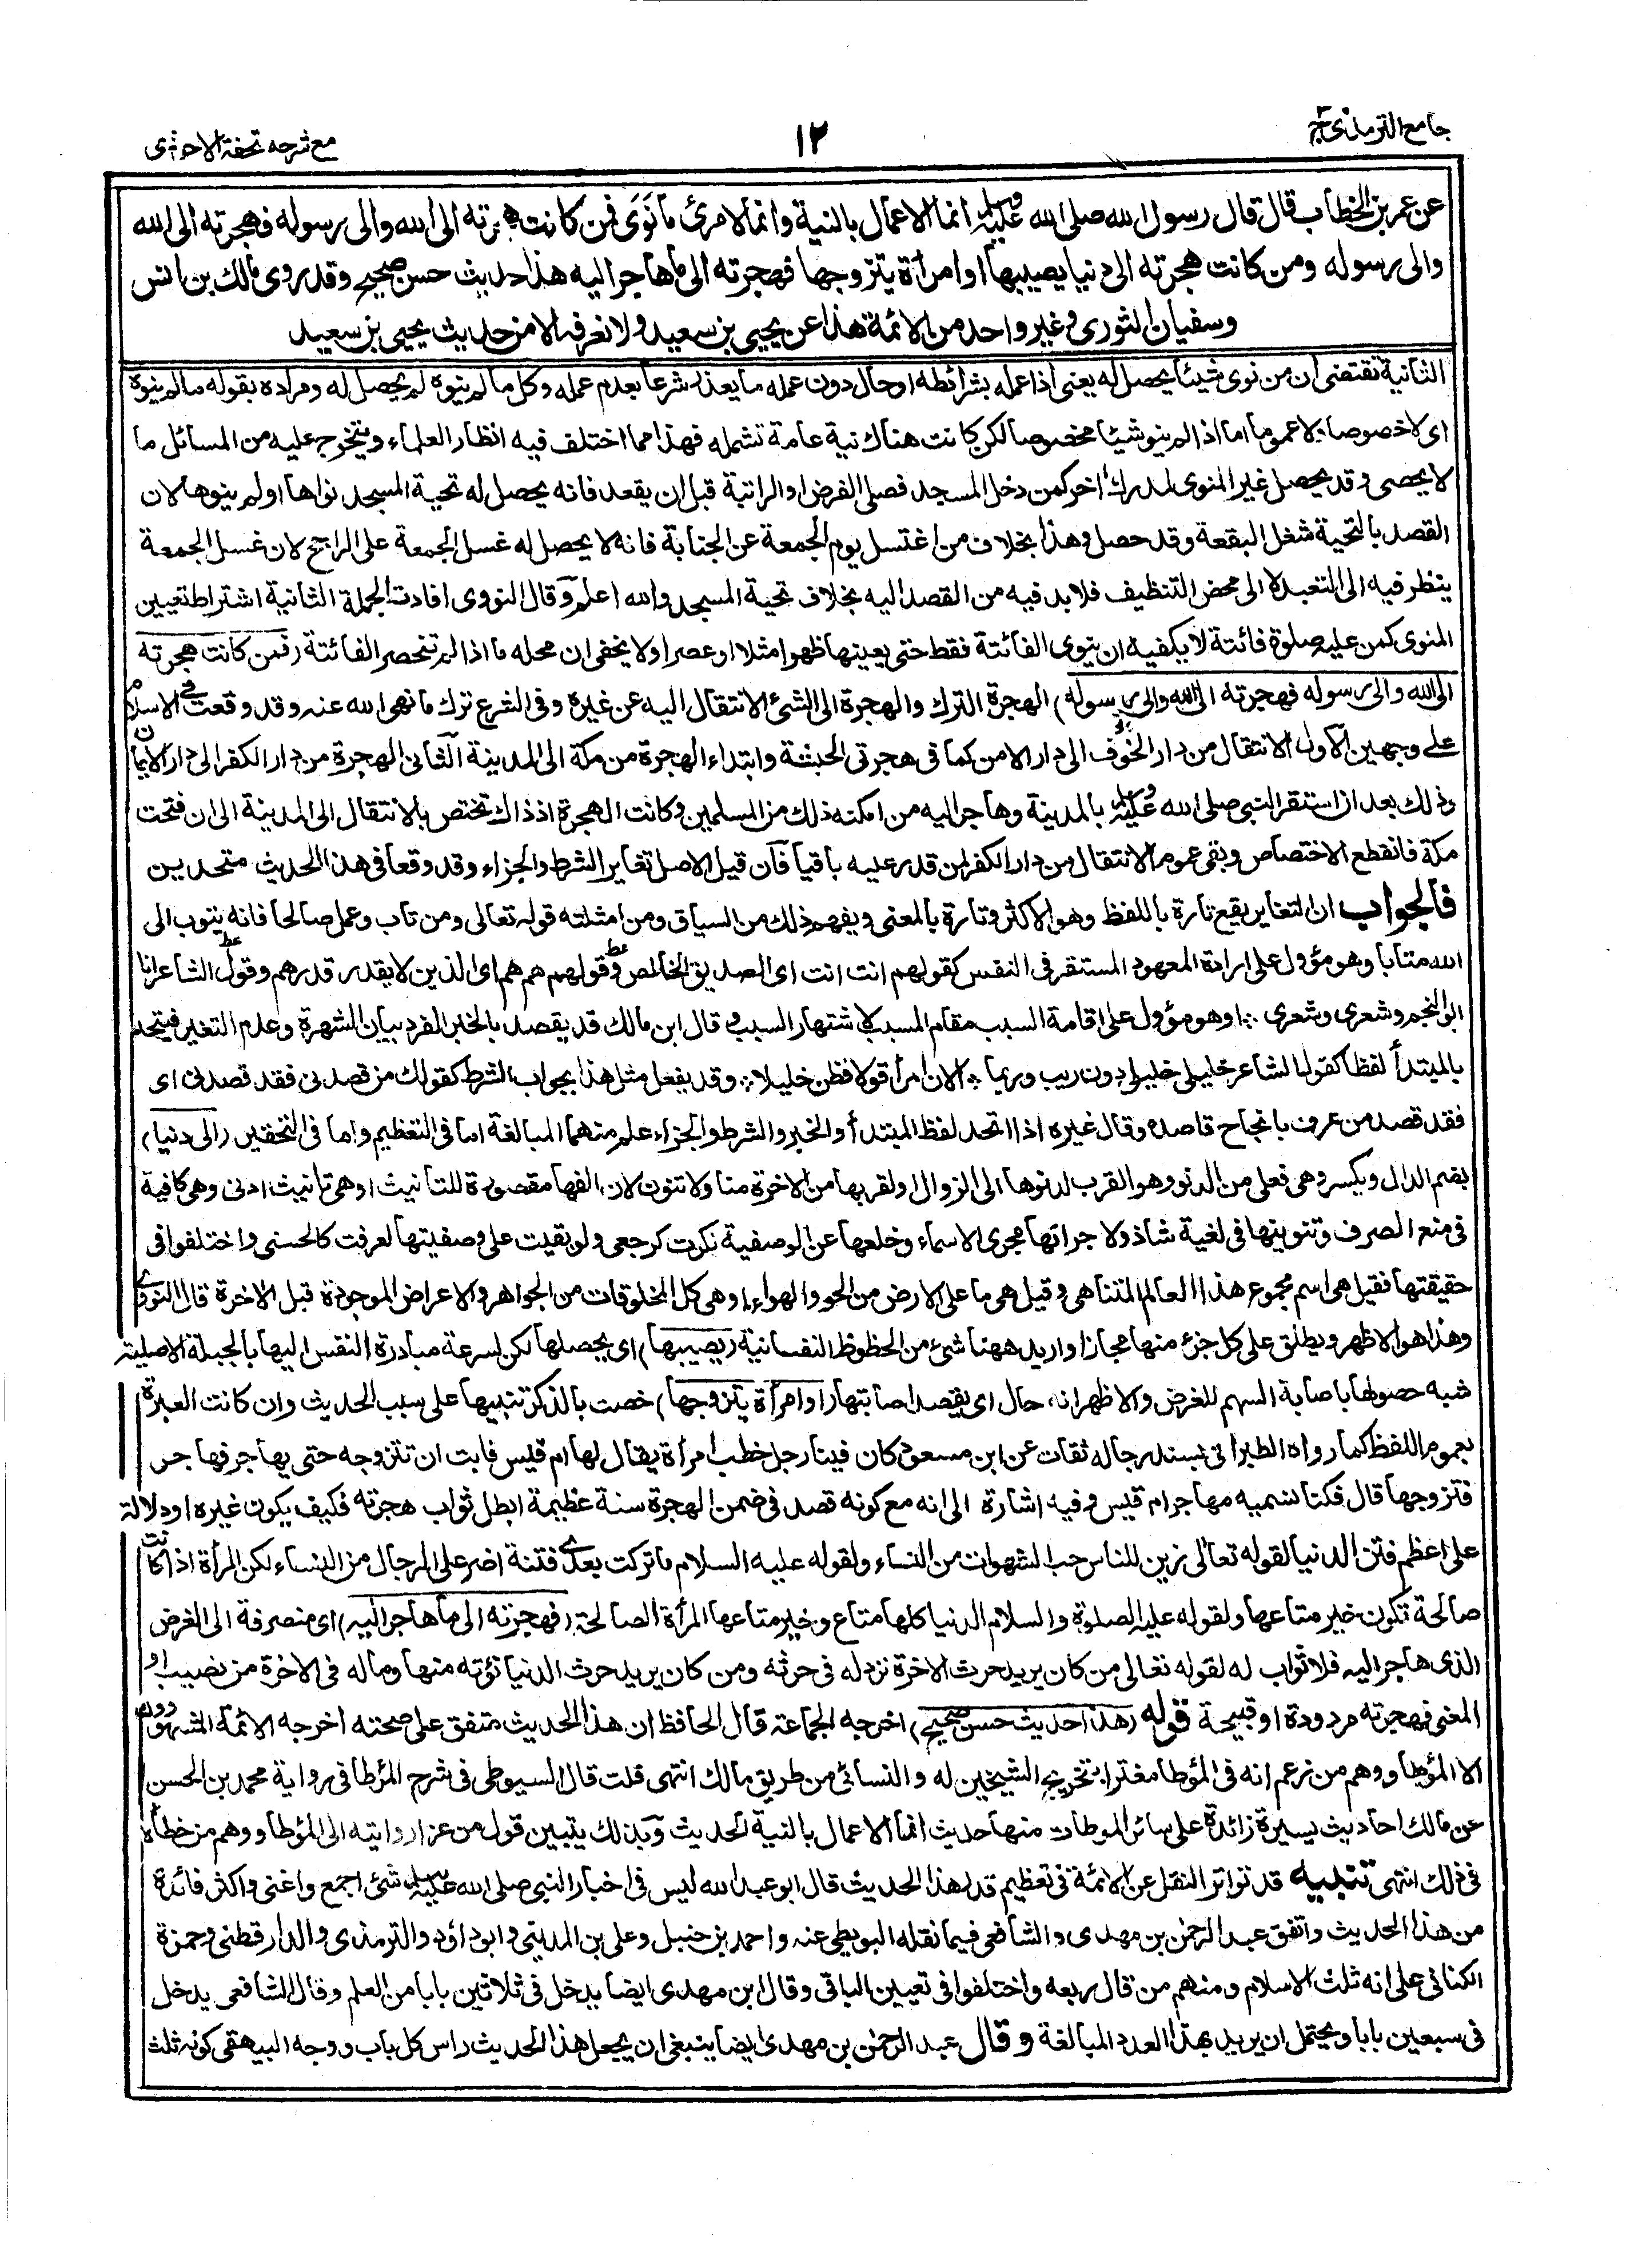 جامع الترمذی ج ٣
١٢
مع شرحه تحفة الاحوذی
عن عمر بن الخطاب قال قال رسول الله صلى الله عليه وسلم انما الاعمال بالنية وانما لامرئ ما نَوَى فمن كانت هجرته الى الله والى رسوله فهجرته الى الله
والى رسوله ومن كانت هجرته الى دنيا يصيبها او امرأة يتزوجها فهجرته الى ما هاجر اليه هذا حديث حسن صحيح وقد روى مالك بن انس
وسفيان الثورى وغير واحد من الائمة هذا عن يحيى بن سعيد ولا نعرفه الا من حديث يحيى بن سعيد
الثانية تقتضى ان من نوى شيئا يحصل له يعنى اذا عمله بشرائطه او حال دون عمله ما يعذر شرعا بعدم عمله وكل ما لم ينوه لم يحصل له ومراده بقوله ما لم ينوه
اى لا خصوصا ولا عموما اما اذا لم ينو شيئا مخصوصا لكن كانت هناك نية عامة تشمله فهذا مما اختلف فيه انظار العلماء ويتخرج عليه من المسائل ما
لا يحصى وقد يحصل غير المنوى لمدرك اخر كمن دخل المسجد فصلى الفرض او الراتبة قبل ان يقعد فانه يحصل له تحية المسجد نواها او لم ينوها لان
القصد بالتحية شغل البقعة وقد حصل وهذا بخلاف من اغتسل يوم الجمعة عن الجنابة فانه لا يحصل له غسل الجمعة على الراجح لان غسل الجمعة
ينظر فيه الى التعبد لا الى محض التنظيف فلا بد فيه من القصد اليه بخلاف تحية المسجد والله اعلم وقال النووى افادت الجملة الثانية اشتراط تعيين
المنوى كمن عليه صلوة فائتة لا يكفيه ان ينوى الفائتة فقط حتى يعينها ظهرا مثلا او عصرا ولا يخفى ان محله ما اذا لم تنحصر الفائتة (فمن كانت هجرته
الى الله والى رسوله فهجرته الى الله والى رسوله) الهجرة الترك والهجرة الى الشئ الانتقال اليه عن غيره وفى الشرع ترك ما نهى الله عنه وقد وقعت فى الاسلام
على وجهين الاول الانتقال من دار الخوف الى دار الامن كما فى هجرتى الحبشة وابتداء الهجرة من مكة الى المدينة الثانى الهجرة من دار الكفر الى دار الايمان
وذلك بعد ان استقر النبى صلى الله عليه وسلم بالمدينة وهاجر اليه من امكنه ذلك من المسلمين وكانت الهجرة اذ ذاك تختص بالانتقال الى المدينة الى ان فتحت
مكة فانقطع الاختصاص وبقى عموم الانتقال من دار الكفر لمن قدر عليه باقيا فان قيل الاصل تغاير الشرط والجزاء وقد وقعا فى هذا الحديث متحدين
فالجواب ان التغاير يقع تارة باللفظ وهو الاكثر وتارة بالمعنى ويفهم ذلك من السياق ومن امثلته قوله تعالى ومن تاب وعمل صالحا فانه يتوب الى
الله متابا وهو مؤول على ارادة المعهود المستقر فى النفس كقولهم انت انت اى الصديق الخالص وقولهم هم هم اى الذين لا يقدر قدرهم وقول الشاعر انا
ابو النجم وشعرى وشعرى ؞ او هو مؤول على اقامة السبب مقام المسبب لاشتهار السبب وقال ابن مالك قد يقصد بالخبر المفرد بيان الشهرة وعدم التغير فيتحد
بالمبتدأ لفظا كقول الشاعر خليلى خليلى دون ريب وربما ؞ الان امرأ قولا فظن خليلا ؞ وقد يفعل مثل هذا بجواب الشرط كقولك من قصدنى فقد قصدنى اى
فقد قصد من عرف بانجاح قاصده وقال غيره اذا اتحد لفظ المبتدأ والخبر والشرط والجزاء علم منهما المبالغة اما فى التعظيم واما فى التحقير (الى دنيا)
بضم الدال ويكسر وهى فعلى من الدنو وهو القرب لدنوها الى الزوال او لقربها من الاخرة منا ولا تنون لان الفها مقصورة للتأنيث او هى تأنيث ادنى وهى كافية
فى منع الصرف وتنوينها فى لغية شاذ ولاجرائها مجرى الاسماء وخلعها عن الوصفية نكرت كرجعى ولو بقيت على وصفيتها لعرفت كالحسنى واختلفوا فى
حقيقتها فقيل هى اسم مجموع هذا العالم المتناهى وقيل هى ما على الارض من الجو والهواء او هى كل المخلوقات من الجواهر والاعراض الموجودة قبل الاخرة قال النووى
وهذا هو الاظهر ويطلق على كل جزء منها مجازا واريد ههنا شئ من الحظوظ النفسانية (يصيبها) اى يحصلها لكن لسرعة مبادرة النفس اليها بالجبلة الاصلية
شبه حصولها باصابة السهم للغرض والاظهر انه حال اى يقصد اصابتها (او امرأة يتزوجها) خصت بالذكر تنبيها على سبب الحديث وان كانت العبرة
بعموم اللفظ كما رواه الطبرانى بسند رجاله ثقات عن ابن مسعود كان فينا رجل خطب امرأة يقال لها ام قيس فابت ان تتزوجه حتى يهاجر فهاجر
فتزوجها قال فكنا نسميه مهاجر ام قيس وفيه اشارة الى انه مع كونه قصد فى ضمن الهجرة سنة عظيمة ابطل ثواب هجرته فكيف يكون غيره او دلالة
على اعظم فتن الدنيا لقوله تعالى زين للناس حب الشهوات من النساء ولقوله عليه السلام ما تركت بعدى فتنة اضر على الرجال من النساء لكن المرأة اذا كانت
صالحة تكون خير متاعها ولقوله عليه الصلوة والسلام الدنيا كلها متاع وخير متاعها المرأة الصالحة (فهجرته الى ما هاجر اليه) اى منصرفة الى الغرض
الذى هاجر اليه فلا ثواب له لقوله تعالى من كان يريد حرث الاخرة نزد له فى حرثه ومن كان يريد حرث الدنيا نؤته منها وماله فى الاخرة من نصيب او
المعنى فهجرته مردودة او قبيحة قوله (هذا حديث حسن صحيح) اخرجه الجماعة قال الحافظ ان هذا الحديث متفق على صحته اخرجه الائمة المشهورون
الا الموطأ ووهم من زعم انه فى الموطأ مغترا بتخريج الشيخين له والنسائى من طريق مالك انتهى قلت قال السيوطى فى شرح الموطأ فى رواية محمد بن الحسن
عن مالك احاديث يسيرة زائدة على سائر الموطات منها حديث انما الاعمال بالنية الحديث وبذلك يتبين قول من عزا روايته الى الموطأ ووهم من خطأه
فى ذلك انتهى تنبيه قد تواتر النقل عن الائمة فى تعظيم قدر هذا الحديث قال ابو عبد الله ليس فى اخبار النبى صلى الله عليه وسلم شئ اجمع واغنى واكثر فائدة
من هذا الحديث واتفق عبد الرحمن بن مهدى والشافعى فيما نقله البويطى عنه واحمد بن حنبل وعلى بن المدينى وابو داؤد والترمذى والدارقطنى وحمزة
الكنانى على انه ثلث الاسلام ومنهم من قال ربعه واختلفوا فى تعيين الباقى وقال ابن مهدى ايضا يدخل فى ثلاثين بابا من العلم وقال الشافعى يدخل
فى سبعين بابا ويحتمل ان يريد بهذا العدد المبالغة وقال عبد الرحمن بن مهدى ايضا ينبغى ان يجعل هذا الحديث راس كل باب ووجه البيهقى كونه ثلث